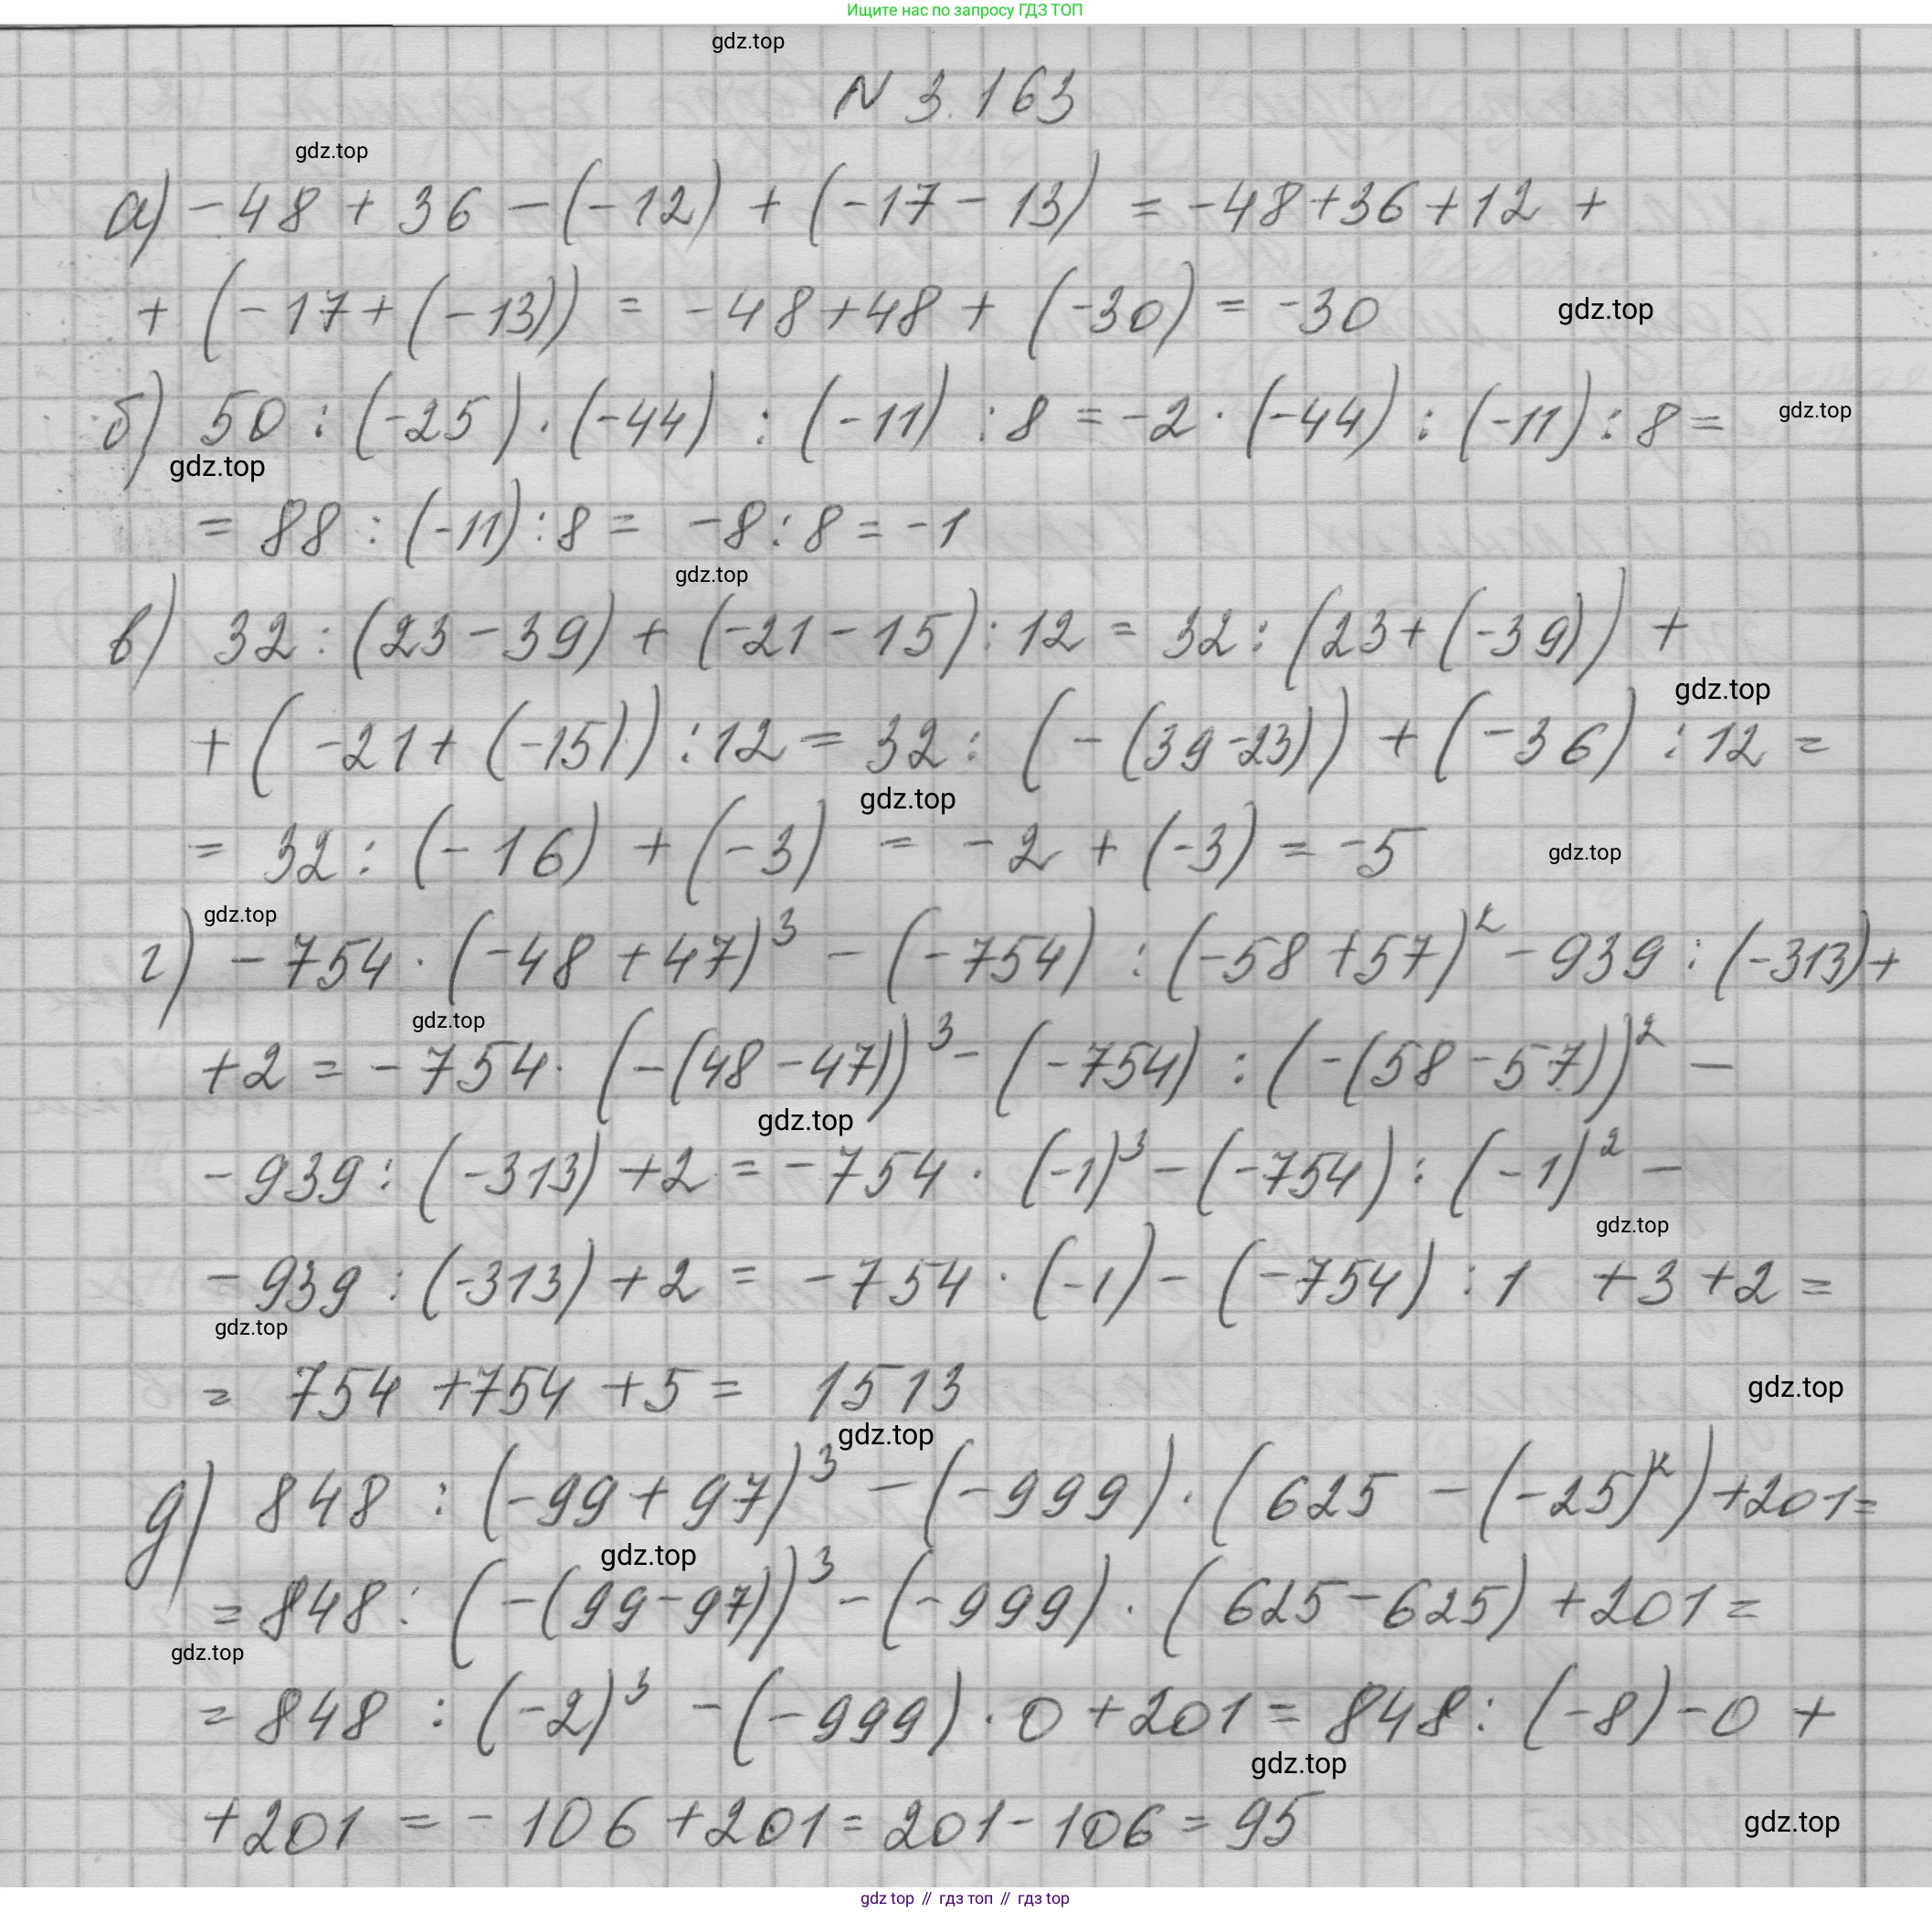 Ищите нас по запросу ГДЗ ТОП
gdz.top
N 3.163
gdz.top
а) -48 + 36 - (-12) + (-17 - 13) = -48 + 36 + 12 +
+ (-17 + (-13)) = -48 + 48 + (-30) = -30
gdz.top
б) 50 : (-25) · (-44) : (-11) : 8 = -2 · (-44) : (-11) : 8 =
gdz.top
gdz.top
= 88 : (-11) : 8 = -8 : 8 = -1
gdz.top
в) 32 : (23 - 39) + (-21 - 15) : 12 = 32 : (23 + (-39)) +
gdz.top
+ (-21 + (-15)) : 12 = 32 : (-(39-23)) + (-36) : 12 =
gdz.top
= 32 : (-16) + (-3) = -2 + (-3) = -5
gdz.top
gdz.top
г) -754 · (-48 + 47)³ - (-754) : (-58 + 57)² - 939 : (-313) +
gdz.top
+ 2 = -754 · (-(48 - 47))³ - (-754) : (-(58 - 57))² -
gdz.top
- 939 : (-313) + 2 = -754 · (-1)³ - (-754) : (-1)² -
gdz.top
- 939 : (-313) + 2 = -754 · (-1) - (-754) : 1 + 3 + 2 =
gdz.top
= 754 + 754 + 5 = 1513
gdz.top
gdz.top
д) 848 : (-99 + 97)³ - (-999) · (625 - (-25)²) + 201 =
gdz.top
= 848 : (-(99-97))³ - (-999) · (625 - 625) + 201 =
gdz.top
= 848 : (-2)³ - (-999) · 0 + 201 = 848 : (-8) - 0 +
gdz.top
+ 201 = -106 + 201 = 201 - 106 = 95
gdz.top
gdz top // гдз топ // гдз top